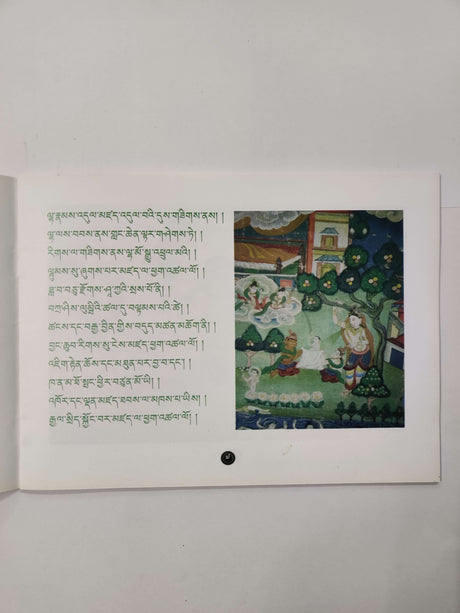 ལྷ་རྣམས་འདུལ་མཛད་འདུལ་བའི་དུས་གཟིགས་ནས། །
ལྷ་ལས་བབས་ནས་གླང་ཆེན་ལྟར་གཤེགས་ཏེ། །
རིགས་ལ་གཟིགས་ནས་ལྷ་མོ་སྒྱུ་འཕྲུལ་མའི། །
ལྷུམས་སུ་ཞུགས་པར་མཛད་ལ་ཕྱག་འཚལ་ལོ། །
ཟླ་བ་བཅུ་རྫོགས་ཤཱ་ཀྱའི་སྲས་པོ་ནི། །
བཀྲ་ཤིས་ལུམྦིའི་ཚལ་དུ་བལྟམས་པའི་ཚེ། །
ཚངས་དང་བརྒྱ་བྱིན་གྱིས་བཏུད་མཚན་མཆོག་ནི། །
བྱང་ཆུབ་རིགས་སུ་ངེས་མཛད་ཕྱག་འཚལ་ལོ། །
འཇིག་རྟེན་ཆོས་དང་མཐུན་པར་བྱ་བ་དང་། །
ཁ་ན་མ་ཐོ་སྤང་ཕྱིར་བཙུན་མོ་ཡི། །
འཁོར་དང་ལྡན་མཛད་ཐབས་ལ་མཁས་པ་ཡིས། །
རྒྱལ་སྲིད་སྐྱོང་བར་མཛད་ལ་ཕྱག་འཚལ་ལོ། །